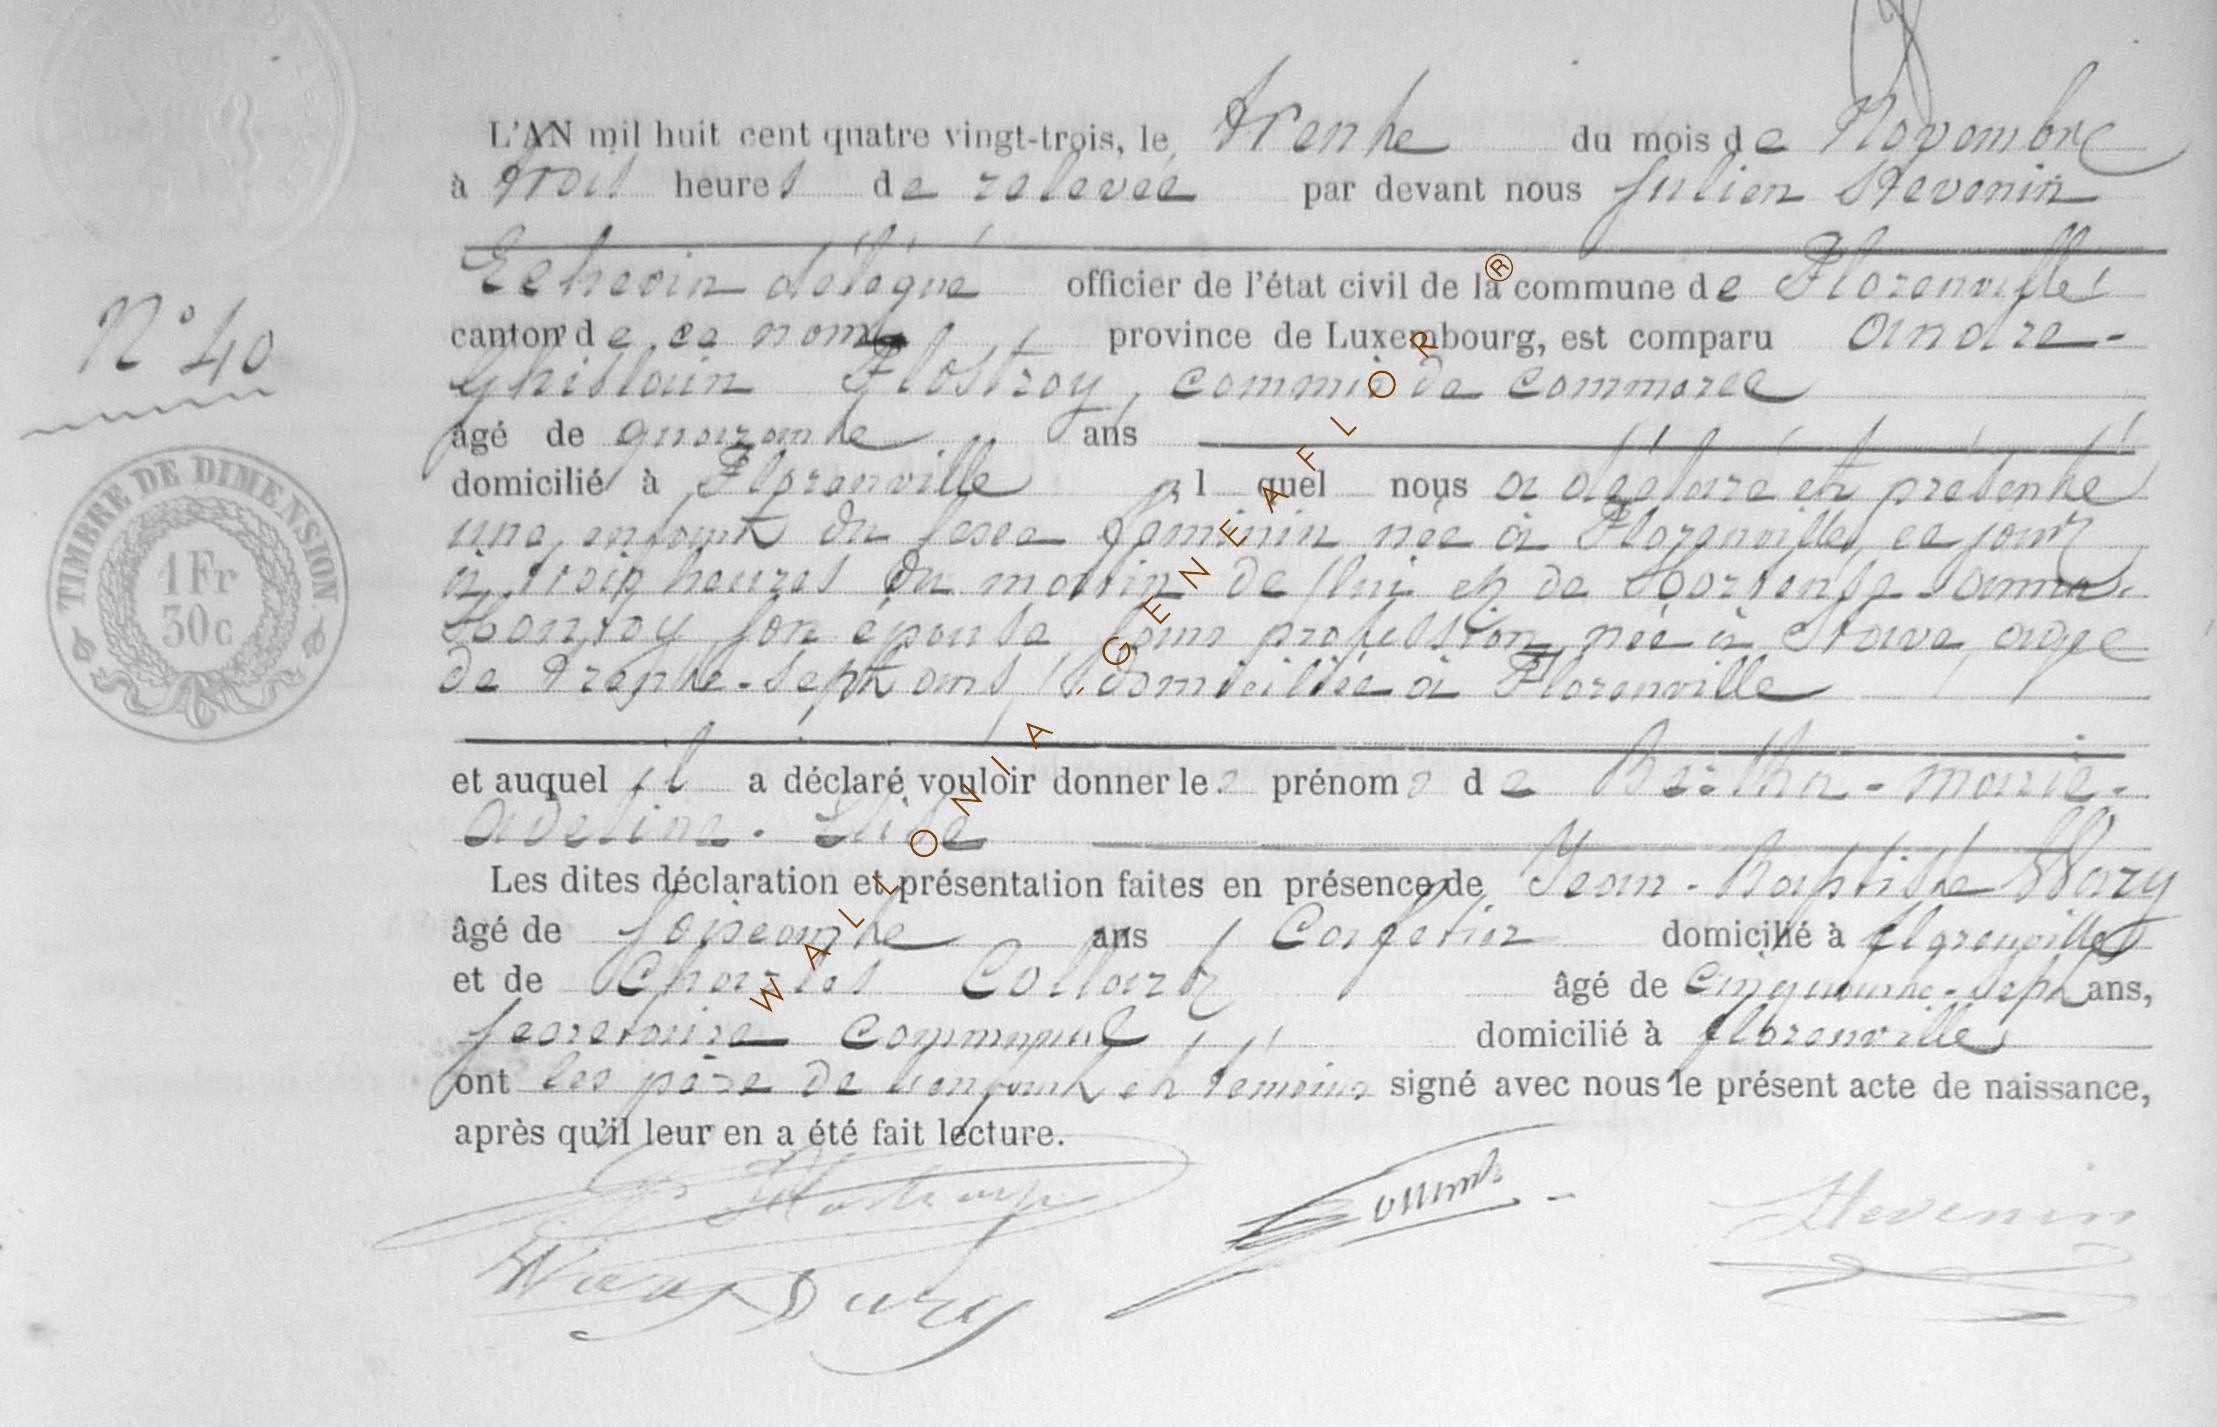 L'AN mil huit cent quatre vingt-trois, le trente du mois de Novembre
à trois heures de relevée par devant nous Julien Stevenin
Echevin délégué officier de l'état civil de la commune de Florenville
canton de ce nom province de Luxembourg, est comparu André-
Ghislain Flostroy, commis de commerce
N° 40
âgé de quarante ans
domicilié à Florenville lequel nous a déclaré et présenté
une enfant du sexe féminin née à Florenville ce jour
à trois heures du matin de lui et de Hortense-Anna-
son épouse sans profession née à Stave, agée
de trente-sept ans domiciliée à Florenville
TIMBRE DE DIMENSION
1 Fr
30c
et auquel il a déclaré vouloir donner les prénoms de Bertha-Marie-
Adeline-Elise
Les dites déclaration et présentation faites en présence de Jean-Baptiste Wary
âgé de soixante ans Cafetier domicilié à florenville
et de Charles Collard âgé de Cinquante-sept ans,
secretaire communal domicilié à florenville
ont les père de l'enfant et témoins signé avec nous le présent acte de naissance,
après qu'il leur en a été fait lecture.
Stevenin
WALLONIA-GENEAFLOR®